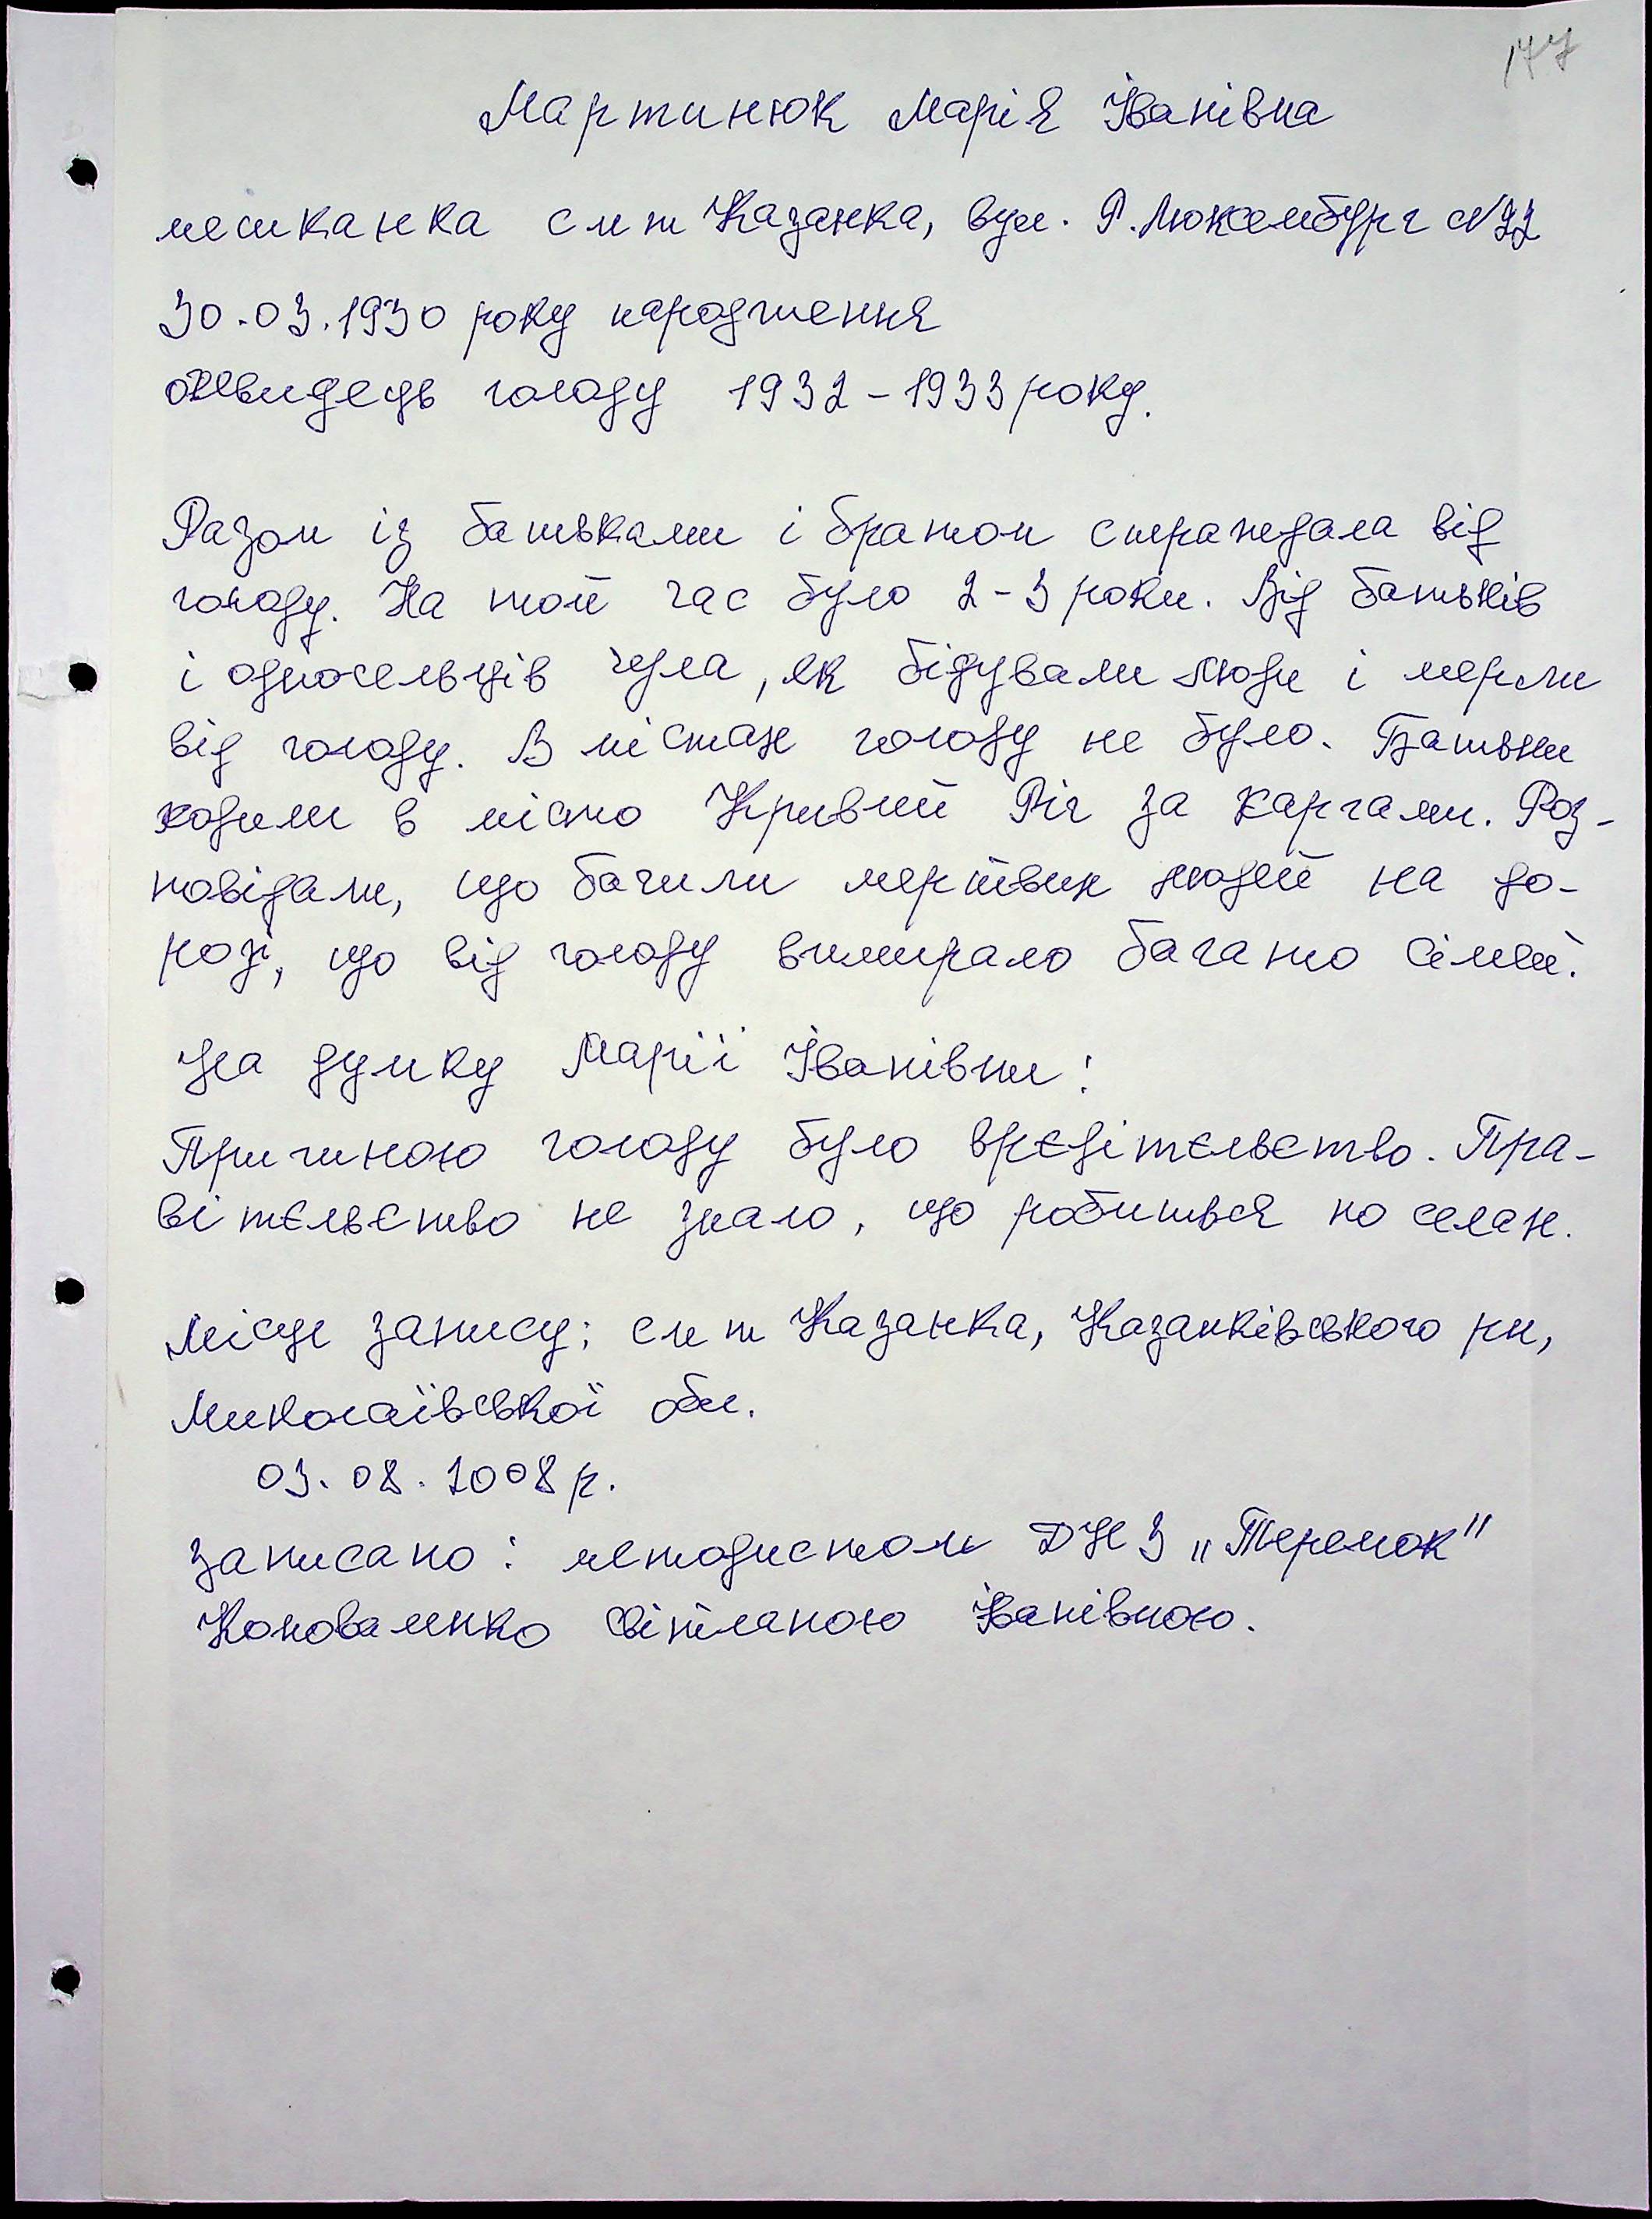 177
Мартинюк Марія Іванівна
мешканка смт Казанка, вул. Р. Люксембург №22
30.03.1930 року народження
очевидець голоду 1932-1933 року.
Разом із батьками і братом страждала від
голоду. На той час було 2-3 роки. Від батьків
і односельців чула, як бідували люди і мерли
від голоду. В містах голоду не було. Батьки
ходили в місто Кривий Ріг за харчами. Роз-
повідали, що бачили мертвих людей на до-
розі, що від голоду вимирало багато сімей.
На думку Марії Іванівни:
Причиною голоду було врєдітєльство. Пра-
вітєльство не знало, що робиться по селах.
Місце запису: смт Казанка, Казанківського рн,
Миколаївської обл.
03.08.2008 р.
Записано: методистом ДНЗ „Теремок"
Коноваленко Світланою Іванівною.